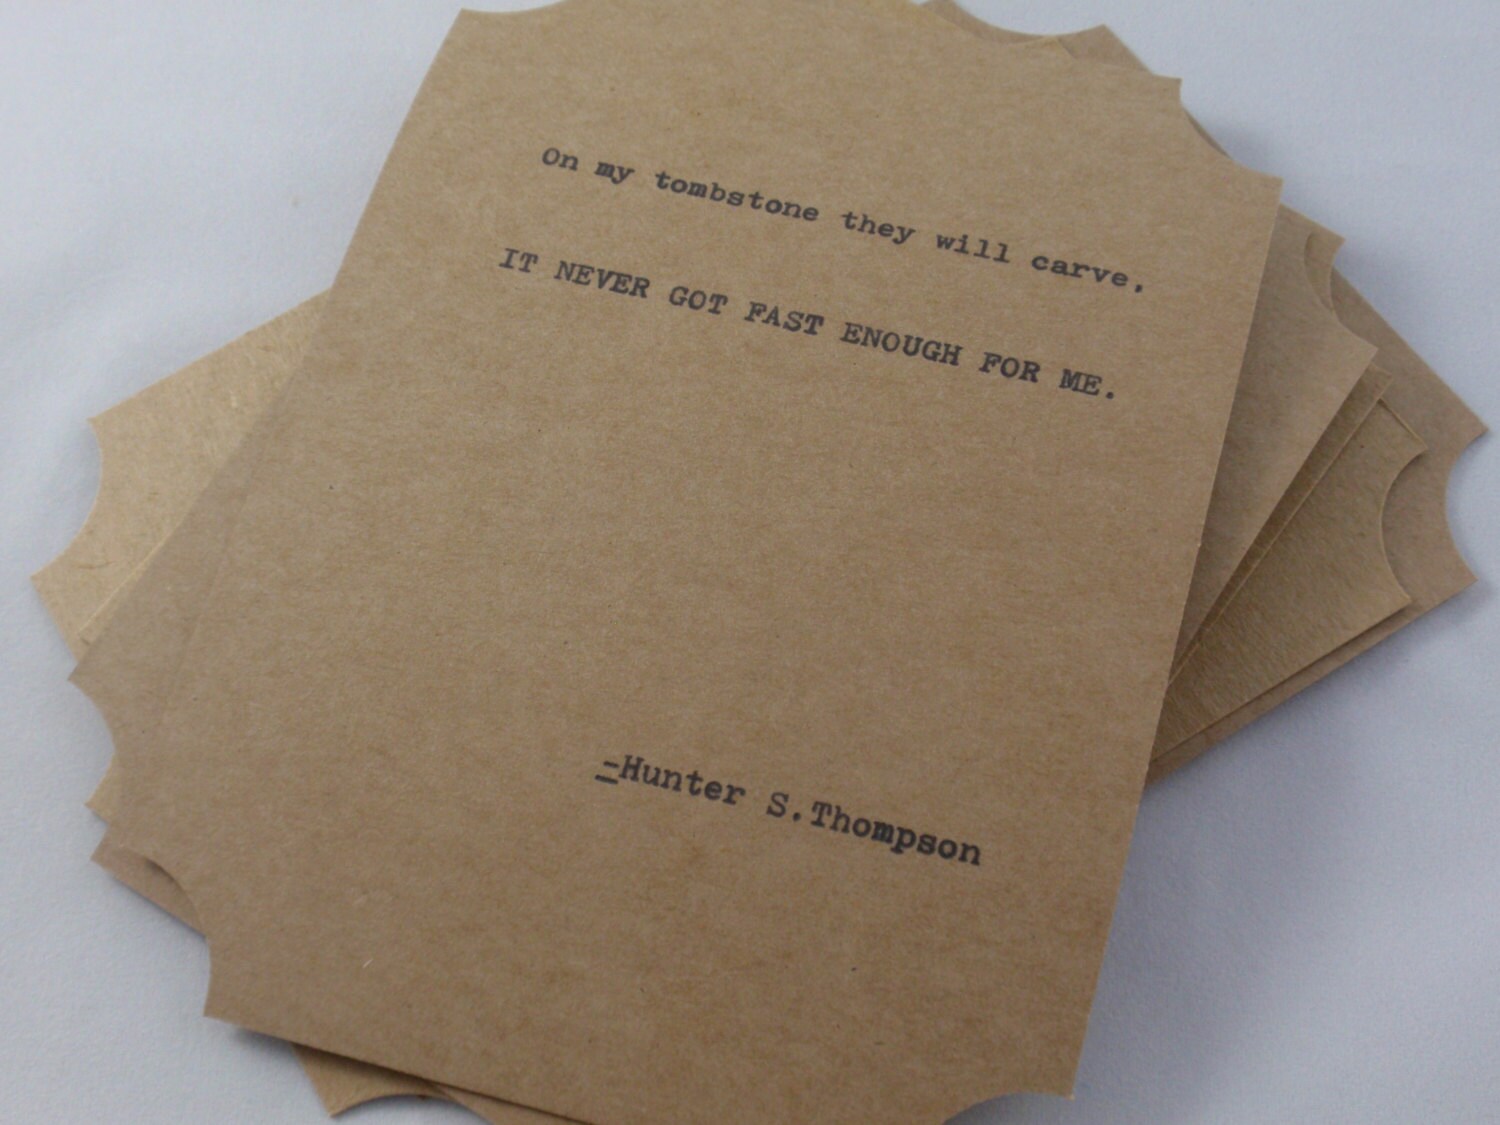 On my tombstone they will carve,
IT NEVER GOT FAST ENOUGH FOR ME.
-Hunter S.Thompson